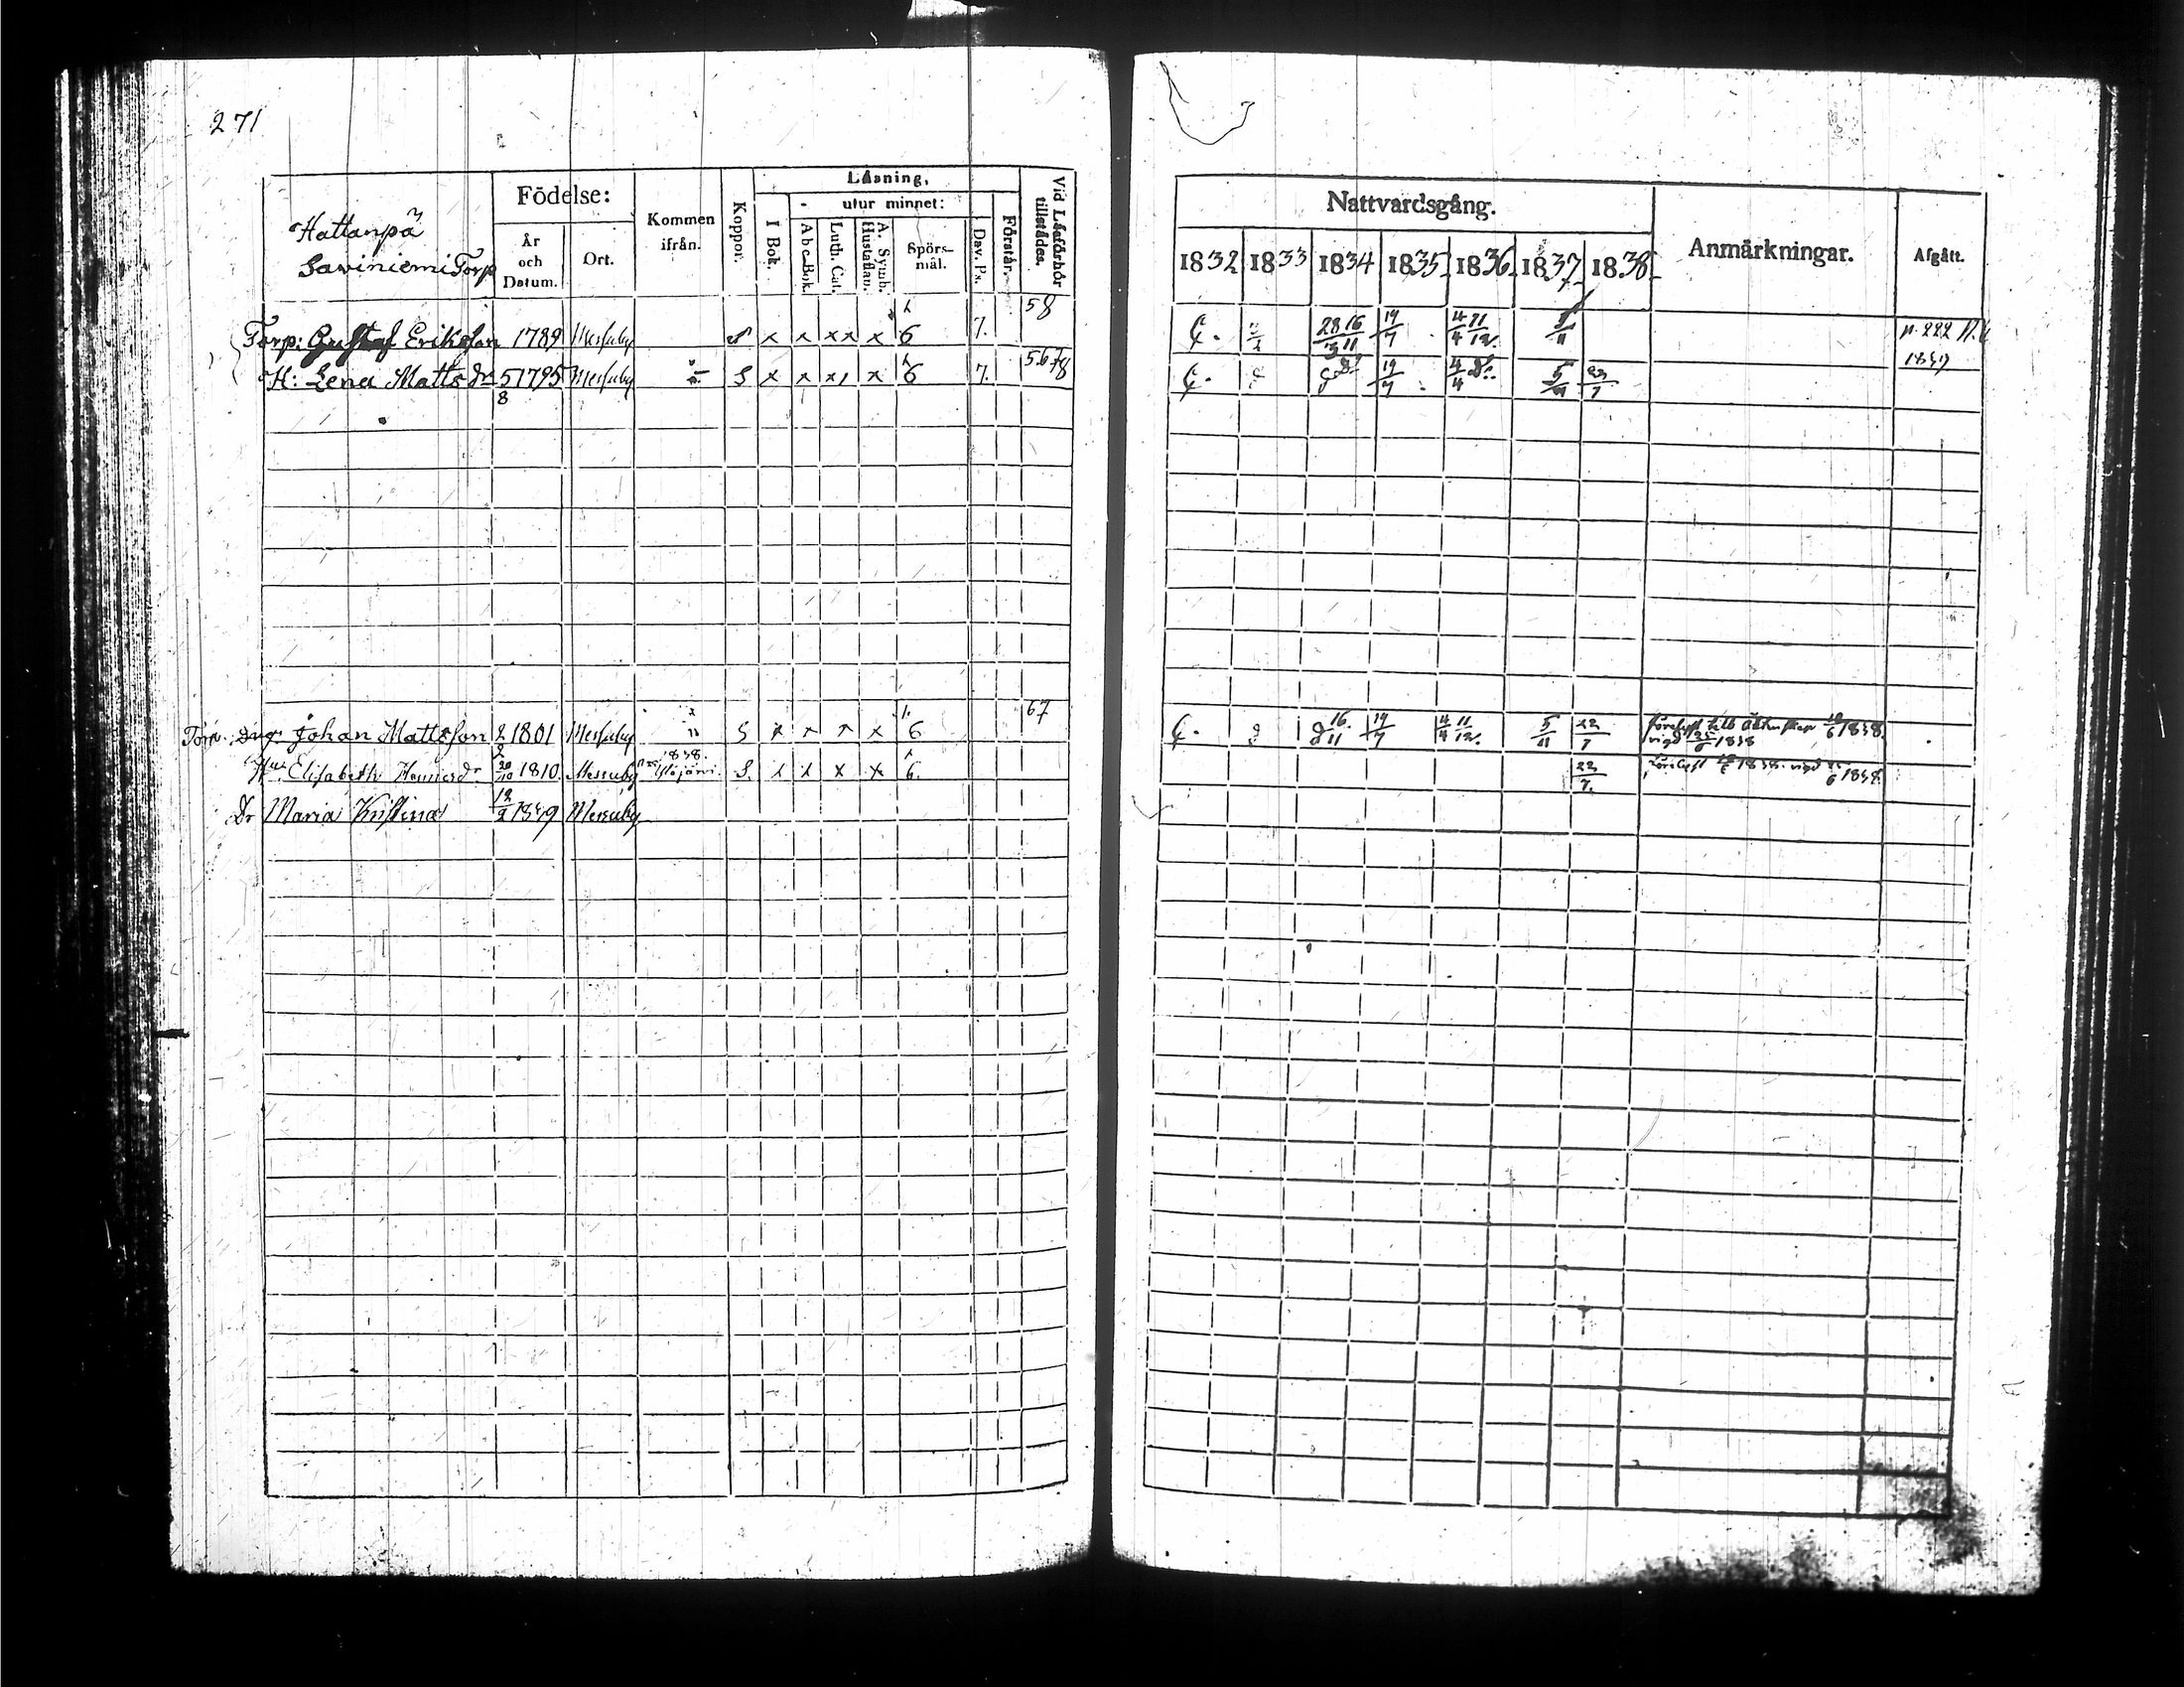 271
Hattanpä
Saviniemi Torp
Födelse:
År och Datum.
Ort.
Kommen ifrån.
Koppor.
Läsning,
I Bok.
utur minnet:
A b c-Bok.
Luth. Cat.
A. Symb. Hustaflan.
Spörs-mål.
Dav. Ps.
Förstår.
Vid Läsförhör tillstädes.
Torp: Gustaf Erikson 1789 Messuby x x x x x 6 7. 58
H: Lena Matts dr 5/8 1795 Messuby S x x x x 6 7. 5678
Torp. Drg. Johan Mattsson 1801 Messuby S x x x x 6 67
Hu Elisabeth Henricsdr 20/10 1810. Messuby 1838. Ylöjärvi S. x x x x 6.
Dr Maria Kristina 12/2 1839 Messuby
Nattvardsgång.
Anmärkningar.
Afgått.
1832 1833 1834 1835 1836 1837 1838
28/3 16/11 19/7 4/4 11/12 5/11 p. 222
1839
19/7 4/4 5/11 22/7
16/11 19/7 4/4 11/12. 5/11 22/7 förelyst till äktenskap 10/6 1838.
vigd 25/6 1838
22/7. förelyst 10/6 1838. vigd 25/6 1838.